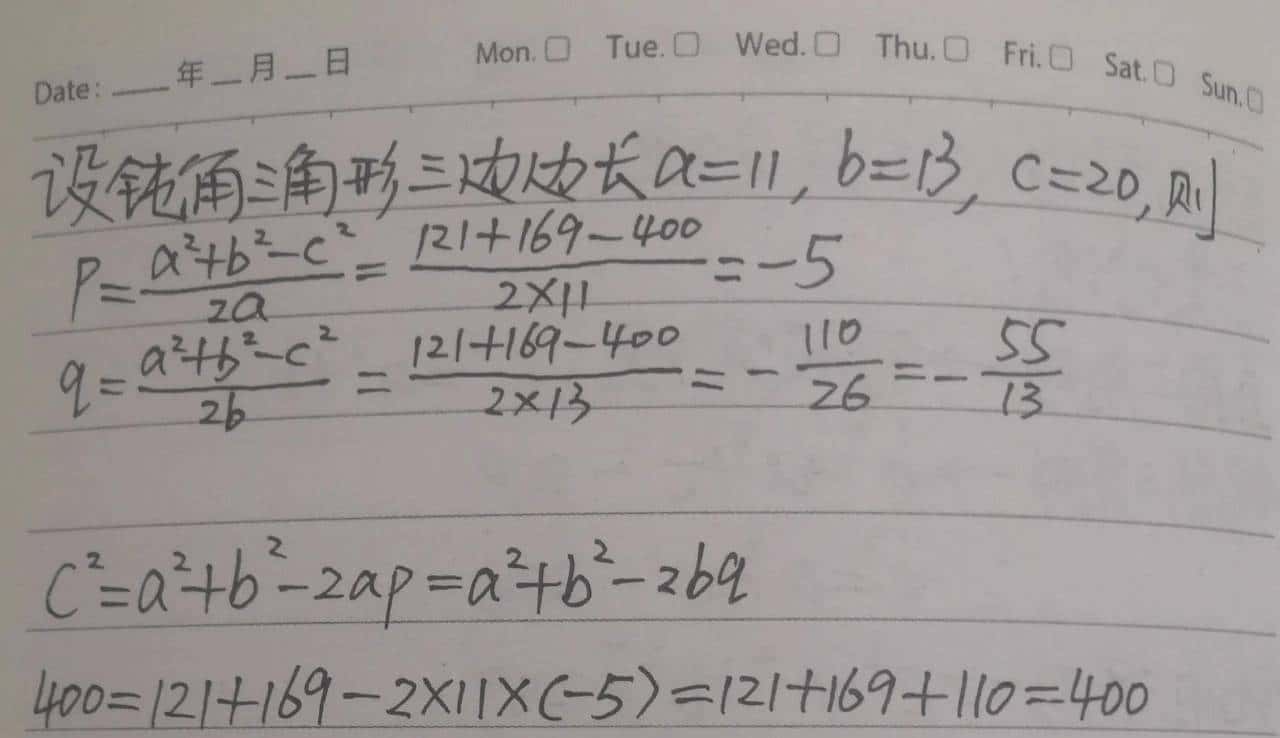 Date: ___年__月__日 Mon.□ Tue.□ Wed.□ Thu.□ Fri.□ Sat.□ Sun.□
设钝角三角形三边边长a=11, b=13, c=20, 则
P=(a²+b²-c²)/(2a)=(121+169-400)/(2×11)=-5
q=(a²+b²-c²)/(2b)=(121+169-400)/(2×13)=-110/26=-55/13
C²=a²+b²-2ap=a²+b²-2bq
400=121+169-2×11×(-5)=121+169+110=400